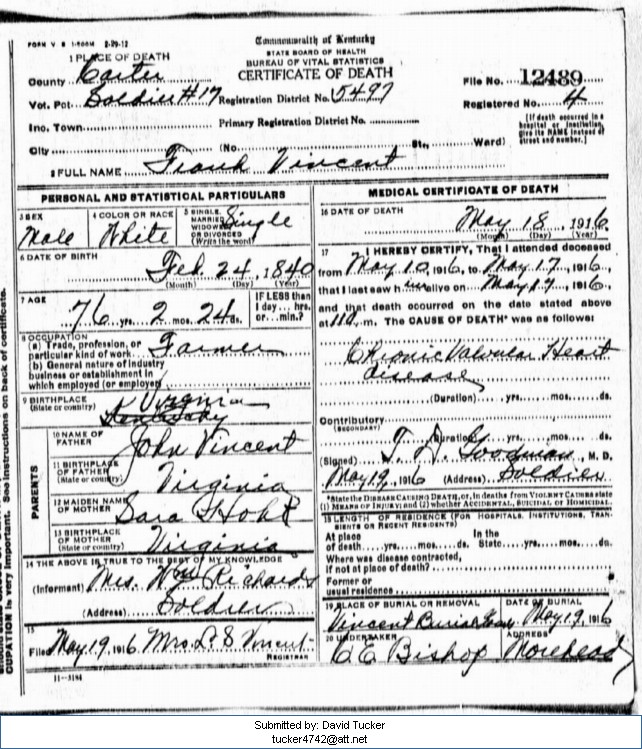 FORM V S 1-500M 2-29-12
Commonwealth of Kentucky
STATE BOARD OF HEALTH
BUREAU OF VITAL STATISTICS
CERTIFICATE OF DEATH
1 PLACE OF DEATH
County Carter
Vot. Pct. Soldier #17 Registration District No. 5497
Inc. Town Primary Registration District No.
City (No. St., Ward)
File No. 12489
Registered No. 4
[If death occurred in a
hospital or institution,
give its NAME instead of
street and number.]
2 FULL NAME Frank Vincent
PERSONAL AND STATISTICAL PARTICULARS
3 SEX Male
4 COLOR OR RACE White
5 SINGLE, MARRIED, WIDOWED OR DIVORCED (Write the word) Single
6 DATE OF BIRTH Feb. 24, 1840
(Month) (Day) (Year)
7 AGE 76 yrs. 2 mos. 24 ds.
IF LESS than
1 day ... hrs.
or ... min.?
8 OCCUPATION
(a) Trade, profession, or
particular kind of work Farmer
(b) General nature of industry
business or establishment in
which employed (or employer)
9 BIRTHPLACE
(State or country) Virginia
Kentucky
PARENTS
10 NAME OF FATHER John Vincent
11 BIRTHPLACE OF FATHER
(State or country) Virginia
12 MAIDEN NAME OF MOTHER Sara
13 BIRTHPLACE OF MOTHER
(State or country) Virginia
14 THE ABOVE IS TRUE TO THE BEST OF MY KNOWLEDGE
(Informant) Mrs. Wm Richards
(Address) Soldier
15
Filed May 19 1916 Mrs. D S Vincent
REGISTRAR
11-3184
MEDICAL CERTIFICATE OF DEATH
16 DATE OF DEATH May 18, 1916
(Month) (Day) (Year)
17 I HEREBY CERTIFY, That I attended deceased
from May 10, 1916, to May 17, 1916,
that I last saw him alive on May 17, 1916,
and that death occurred on the date stated above
at m. The CAUSE OF DEATH* was as follows:
Chronic Valvular Heart
disease
(Duration) yrs. mos. ds.
Contributory
(SECONDARY)
(Duration) yrs. mos. ds.
(Signed) T. D. Goodman, M. D.
May 19, 1916 (Address) Soldier
*State the DISEASE CAUSING DEATH, or, in deaths from VIOLENT CAUSES state
(1) MEANS OF INJURY; and (2) whether ACCIDENTAL, SUICIDAL or HOMICIDAL.
18 LENGTH OF RESIDENCE (FOR HOSPITALS, INSTITUTIONS, TRANSIENTS OR RECENT RESIDENTS)
At place
of death yrs. mos. ds.
In the
State yrs. mos. ds.
Where was disease contracted,
if not at place of death?
Former or
usual residence
19 PLACE OF BURIAL OR REMOVAL
Vincent Burial
DATE OF BURIAL
May 19, 1916
20 UNDERTAKER
C E Bishop
ADDRESS
Morehead
CUPATION is very important. See instructions on back of certificate.
Submitted by: David Tucker
tucker4742@att.net